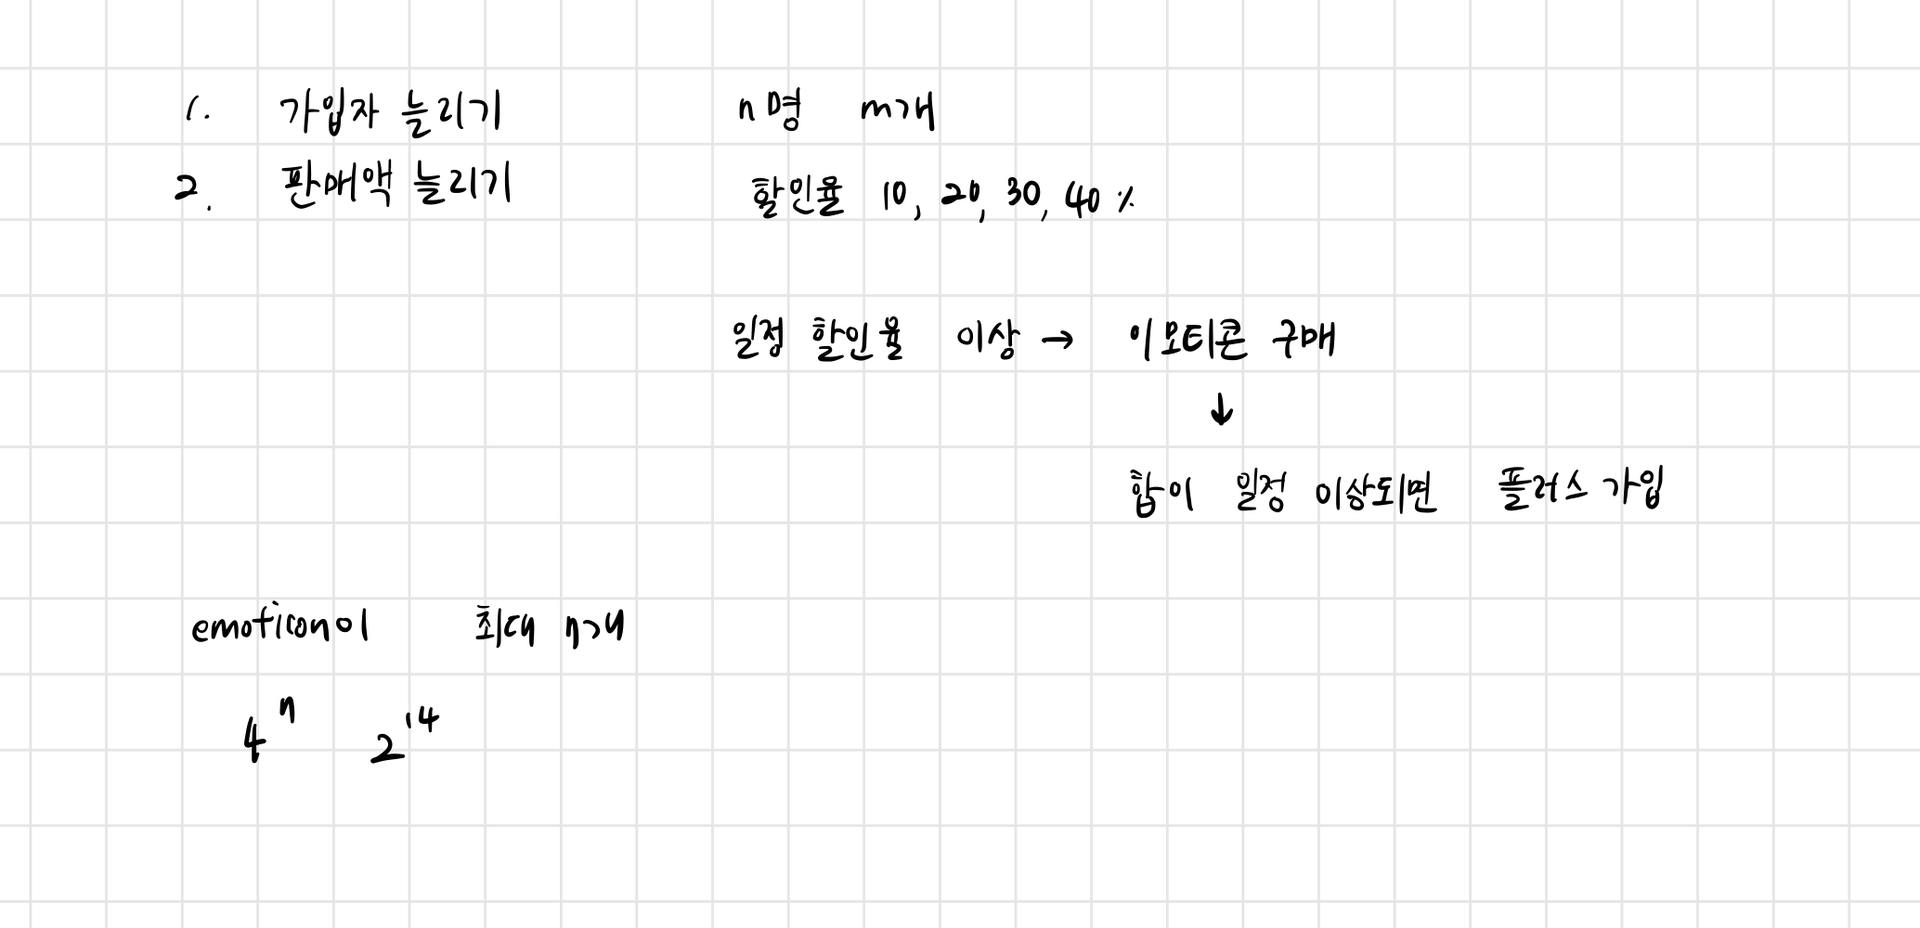 1. 가입자 늘리기
2. 판매액 늘리기
n명 m개
할인율 10, 20, 30, 40 %
일정 할인율 이상 → 이모티콘 구매
↓
합이 일정 이상되면 플러스 가입
emoticon이 최대 7개
4^7 2^14